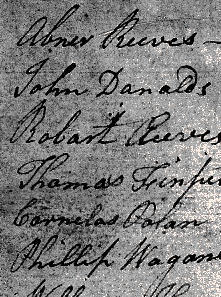 Abner Reeves -
John Danalds
Robart Reeves
Thomas
Cornelas Polan
Phillip Wagone